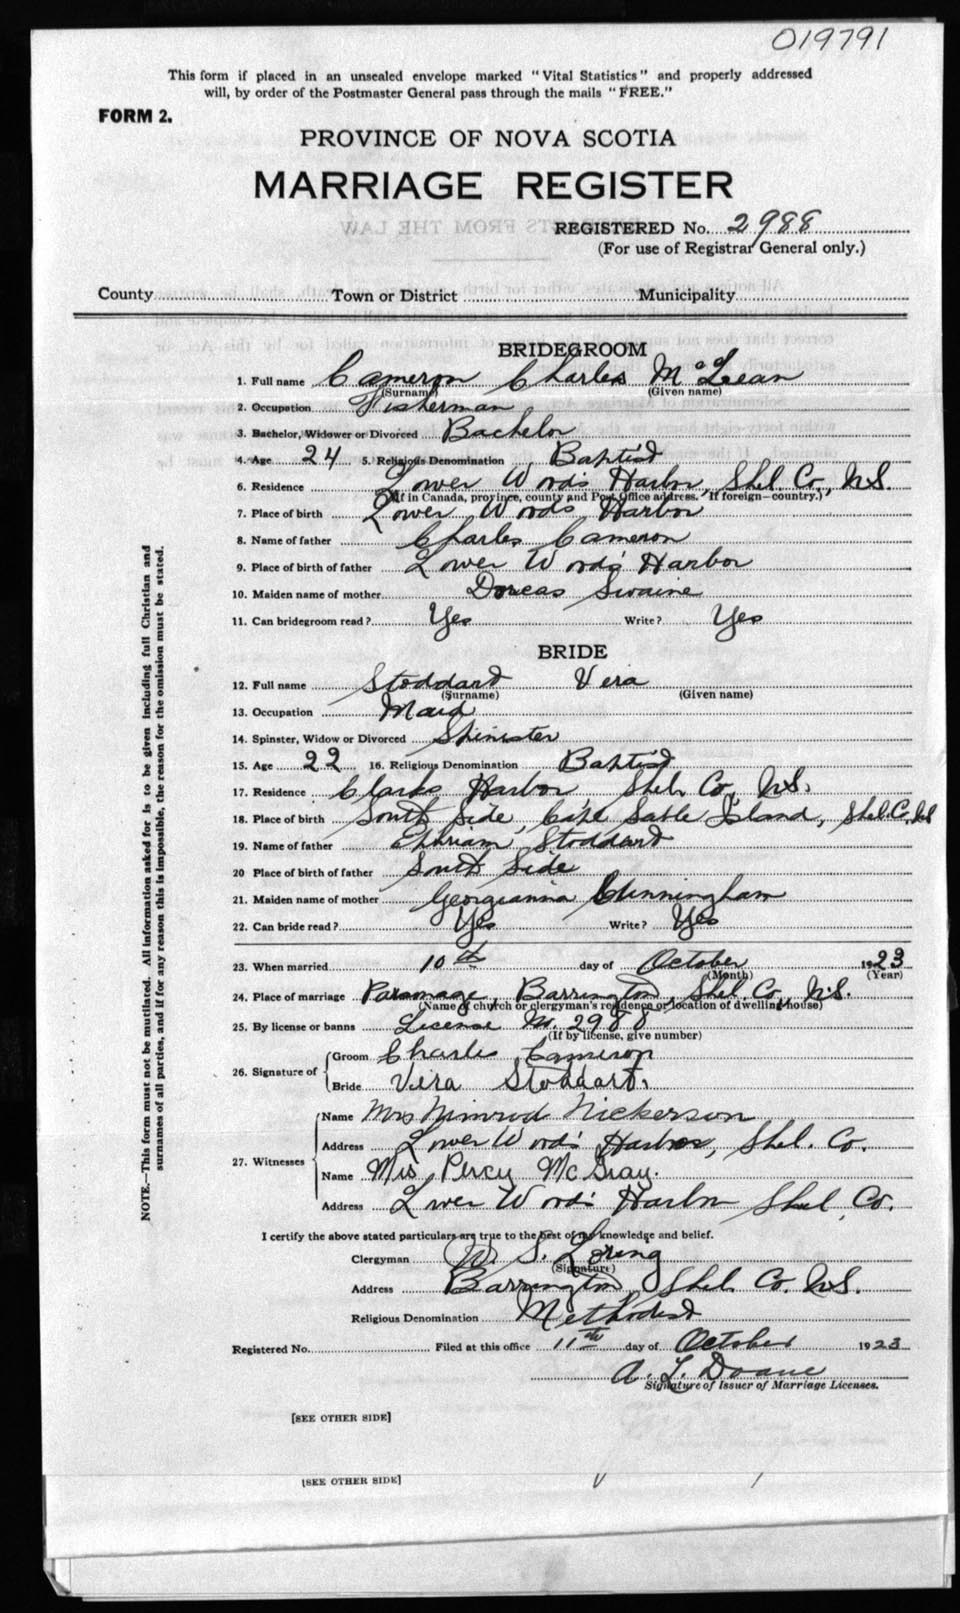 019791
This form if placed in an unsealed envelope marked "Vital Statistics" and properly addressed
will, by order of the Postmaster General pass through the mails "FREE."
FORM 2.
PROVINCE OF NOVA SCOTIA
MARRIAGE REGISTER
REGISTERED No. 2988
(For use of Registrar General only.)
County Town or District Municipality
BRIDEGROOM
1. Full name Cameron Charles McLean
(Surname) (Given name)
2. Occupation Fisherman
3. Bachelor, Widower or Divorced Bachelor
4. Age 24 5. Religious Denomination Baptist
6. Residence Lower Wood's Harbor, Shel. Co., N.S.
(If in Canada, province, county and Post Office address. If foreign—country.)
7. Place of birth Lower Woods Harbor
8. Name of father Charles Cameron
9. Place of birth of father Lower Woods' Harbor
10. Maiden name of mother Dorcas Swaine
11. Can bridegroom read? Yes Write? Yes
BRIDE
12. Full name Stoddard Vera
(Surname) (Given name)
13. Occupation Maid
14. Spinster, Widow or Divorced Spinister
15. Age 22 16. Religious Denomination Baptist
17. Residence Clarks Harbor, Shel. Co., N.S.
18. Place of birth South Side, Cape Sable Island, Shel. Co., N.S.
19. Name of father Ephriam Stoddard
20 Place of birth of father South Side
21. Maiden name of mother Georgianna Cunningham
22. Can bride read? Yes Write? Yes
23. When married 10th day of October 1923
(Month) (Year)
24. Place of marriage Parsonage, Barrington, Shel. Co., N.S.
(Name of church or clergyman's residence or location of dwelling house)
25. By license or banns License No. 2988
(If by license, give number)
26. Signature of
Groom Charlie Cameron
Bride Vera Stoddart.
27. Witnesses
Name Mrs Nimrod Nickerson
Address Lower Woods' Harbor, Shel. Co.
Name Mrs Percy McGray.
Address Lower Woods' Harbor Shel. Co.
I certify the above stated particulars are true to the best of my knowledge and belief.
Clergyman W. S. Loring
(Signature)
Address Barrington, Shel. Co. N.S.
Religious Denomination Methodist
Registered No. Filed at this office 11th day of October 1923
A. L. Doane
Signature of Issuer of Marriage Licenses.
[SEE OTHER SIDE]
[SEE OTHER SIDE]
NOTE.—This form must not be mutilated. All information asked for is to be given including full Christian and
surnames of all parties, and if for any reason this is impossible, the reason for the omission must be stated.